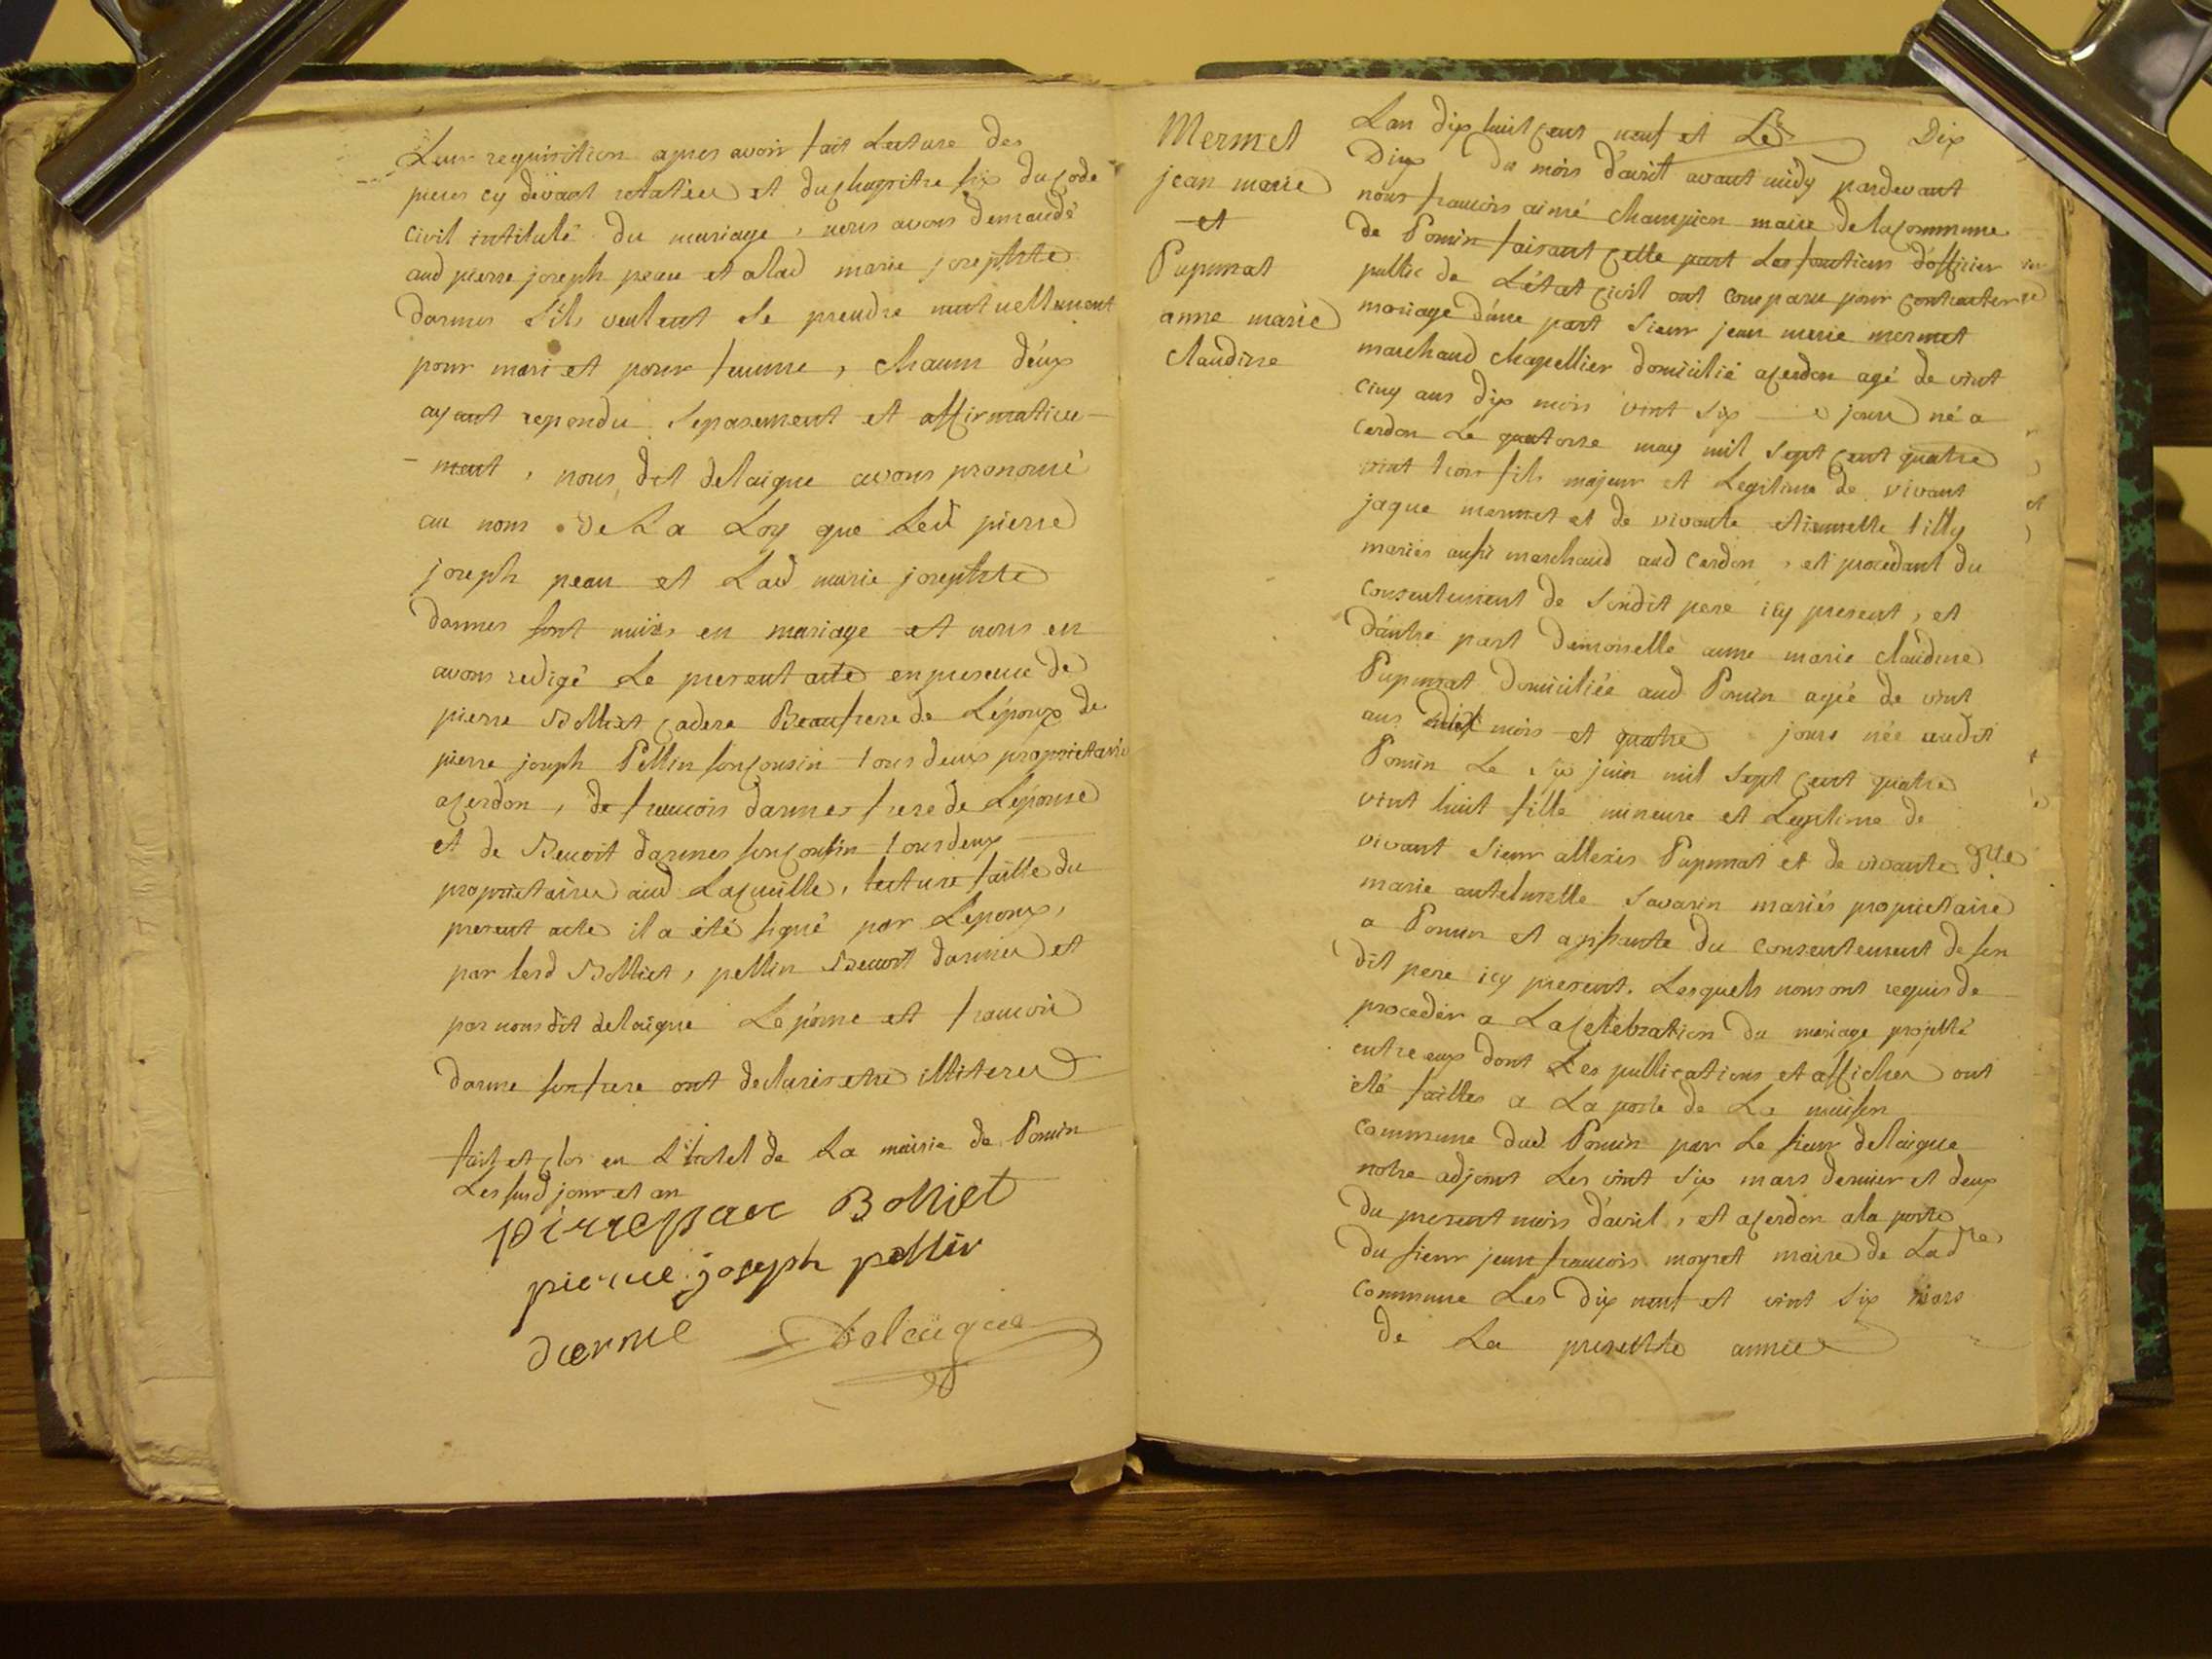 Leur requisition apres avoir fait Lecture des
pieces cy devant relatées et du chapitre six du code
civil intitulé du mariage, nous avons demandé
aud pierre joseph peau et a lad marie josephte
darmes s'ils veulent se prendre mutuellement
pour mari et pour femme, chacun d'eux
ayant repondu separement et affirmative-
-ment, nous dit delaigue avons prononcé
au nom de La Loy que Led pierre
joseph peau et Lad marie josephte
darmes sont unis en mariage et nous en
avons redigé Le present acte en presence de
pierre Bolliet cadere Beaufrere de L'époux de
pierre joseph Pellin son cousin tous deux proprietaires
a cerdon, de francois darmes frere de L'épouse
et de Benoit darmes son cousin tous deux
proprietaires aud Lacueille, lecture faitte du
present acte il a été signé par L'epoux,
par lesd Bolliet, pellin Benoit darmes et
par nous dit delaigue L'épouse et francois
darme son frere ont declarés etre illiteres
fait et clos en L'hotel de La mairie de Poncin
Les susd jour et an
pierre peau Bolliet
pierre joseph pellin
darme Delaigue
Mermet
jean marie
et
Pupunat
anne marie
claudine
Lan dix huit cent neuf et Le Dix
Dix du mois d'avril avant midy pardevant
nous francois aimé champion maire de la commune
de Poncin faisant cette part Les fonctions d'officier
public de L'état civil ont comparu pour contracter
mariage d'une part sieur jean marie mermet
marchand chapellier domicilié a cerdon agé de vint
cinq ans dix mois vint six jours né a
cerdon Le quatorse may mil sept cent quatre
vint trois fils majeur et Legitime de vivant
jaque mermet et de vivante etiennette tilly
mariés aussi marchand aud cerdon, et procedant du
consentement de son dit pere icy present, et
d'autre part demoiselle anne marie claudine
Pupunat domiciliée aud Poncin agée de vint
ans dix mois et quatre jours née audit
Poncin Le six juin mil sept cent quatre
vint huit fille mineure et Legitime de
vivant sieur allexis Pupunat et de vivante dlle
marie antelmette savarin mariés proprietaire
a Poncin et agissante du consentement de son
dit pere icy present. Lesquels nous ont requis de
proceder a La celebration du mariage projetté
entre eux dont Les publications et affiches ont
été faittes a La porte de La maison
commune dud Poncin par Le sieur delaigue
notre adjoint Les vint six mars dernier et deux
du present mois d'avril, et a cerdon a la porte
du sieur jean francois moyret maire de Ladte
commune Les dix neuf et vint six mars
de La presentte année